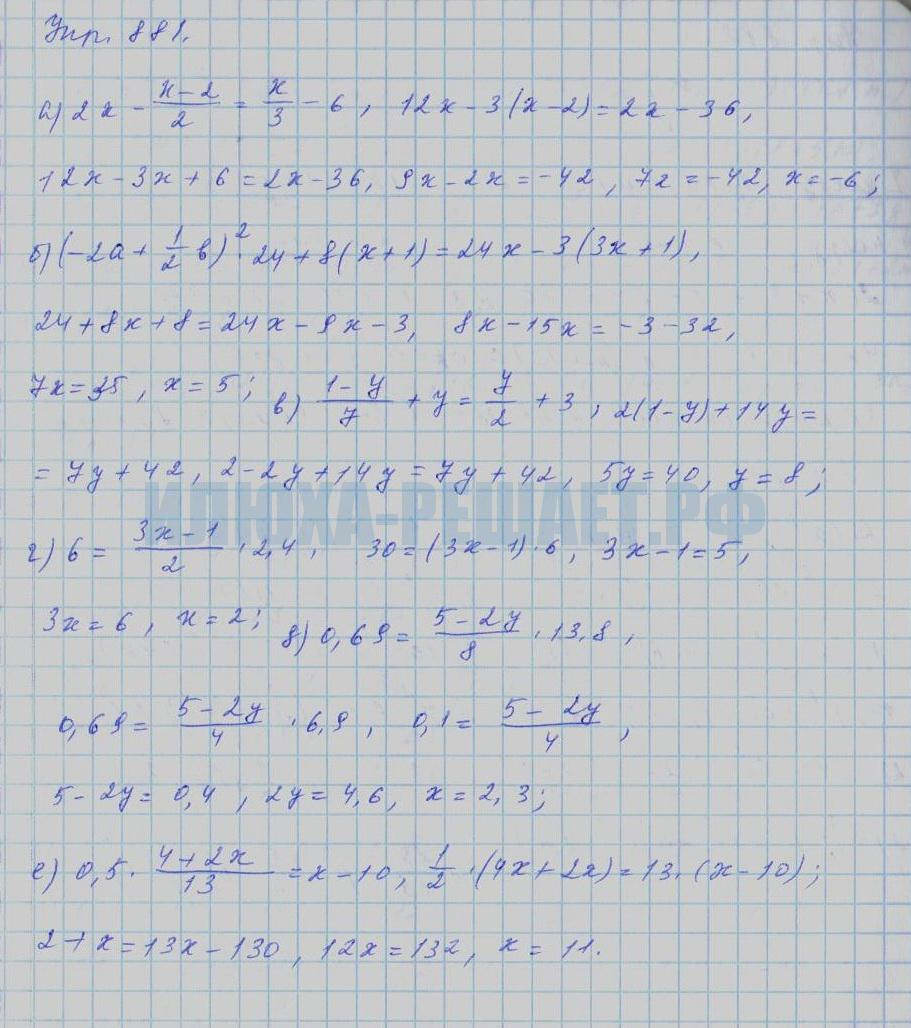 Упр. 881.
а) 2x - (x-2)/2 = x/3 - 6, 12x - 3(x-2) = 2x - 36,
12x - 3x + 6 = 2x - 36, 9x - 2x = -42, 7x = -42, x = -6;
б) (-2a + 1/2 b)² · 24 + 8(x+1) = 24x - 3(3x+1),
24 + 8x + 8 = 24x - 9x - 3, 8x - 15x = -3 - 32,
7x = 35, x = 5; в) (1-y)/7 + y = y/2 + 3, 2(1-y) + 14y =
= 7y + 42, 2 - 2y + 14y = 7y + 42, 5y = 40, y = 8;
ИЛЮХА-РЕШАЕТ.РФ
г) 6 = (3x-1)/2 · 2,4, 30 = (3x-1) · 6, 3x - 1 = 5,
3x = 6, x = 2; д) 0,69 = (5-2y)/8 · 13,8,
0,69 = (5-2y)/4 · 6,9, 0,1 = (5-2y)/4,
5 - 2y = 0,4, 2y = 4,6, x = 2,3;
е) 0,5 · (4+2x)/13 = x - 10, 1/2 · (4x+2x) = 13 · (x-10);
2 + x = 13x - 130, 12x = 132, x = 11.